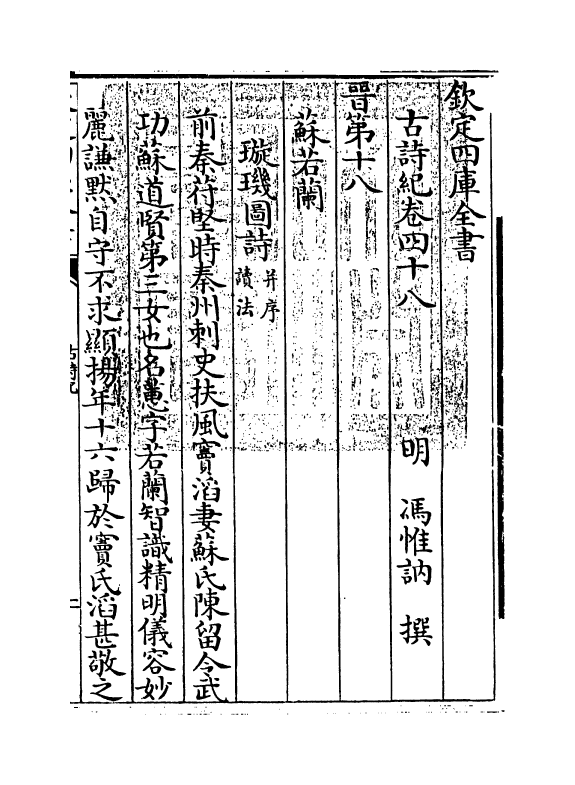 欽定四庫全書
古詩紀卷四十八
明 馮惟訥 撰
晉第十八
蘇若蘭
璇璣圖詩 并序
讀法
前秦苻堅時秦州刺史扶風竇滔妻蘇氏陳留令武
功蘇道賢第三女也名蕙字若蘭智識精明儀容妙
麗謙默自守不求顯揚年十六歸於竇氏滔甚敬之